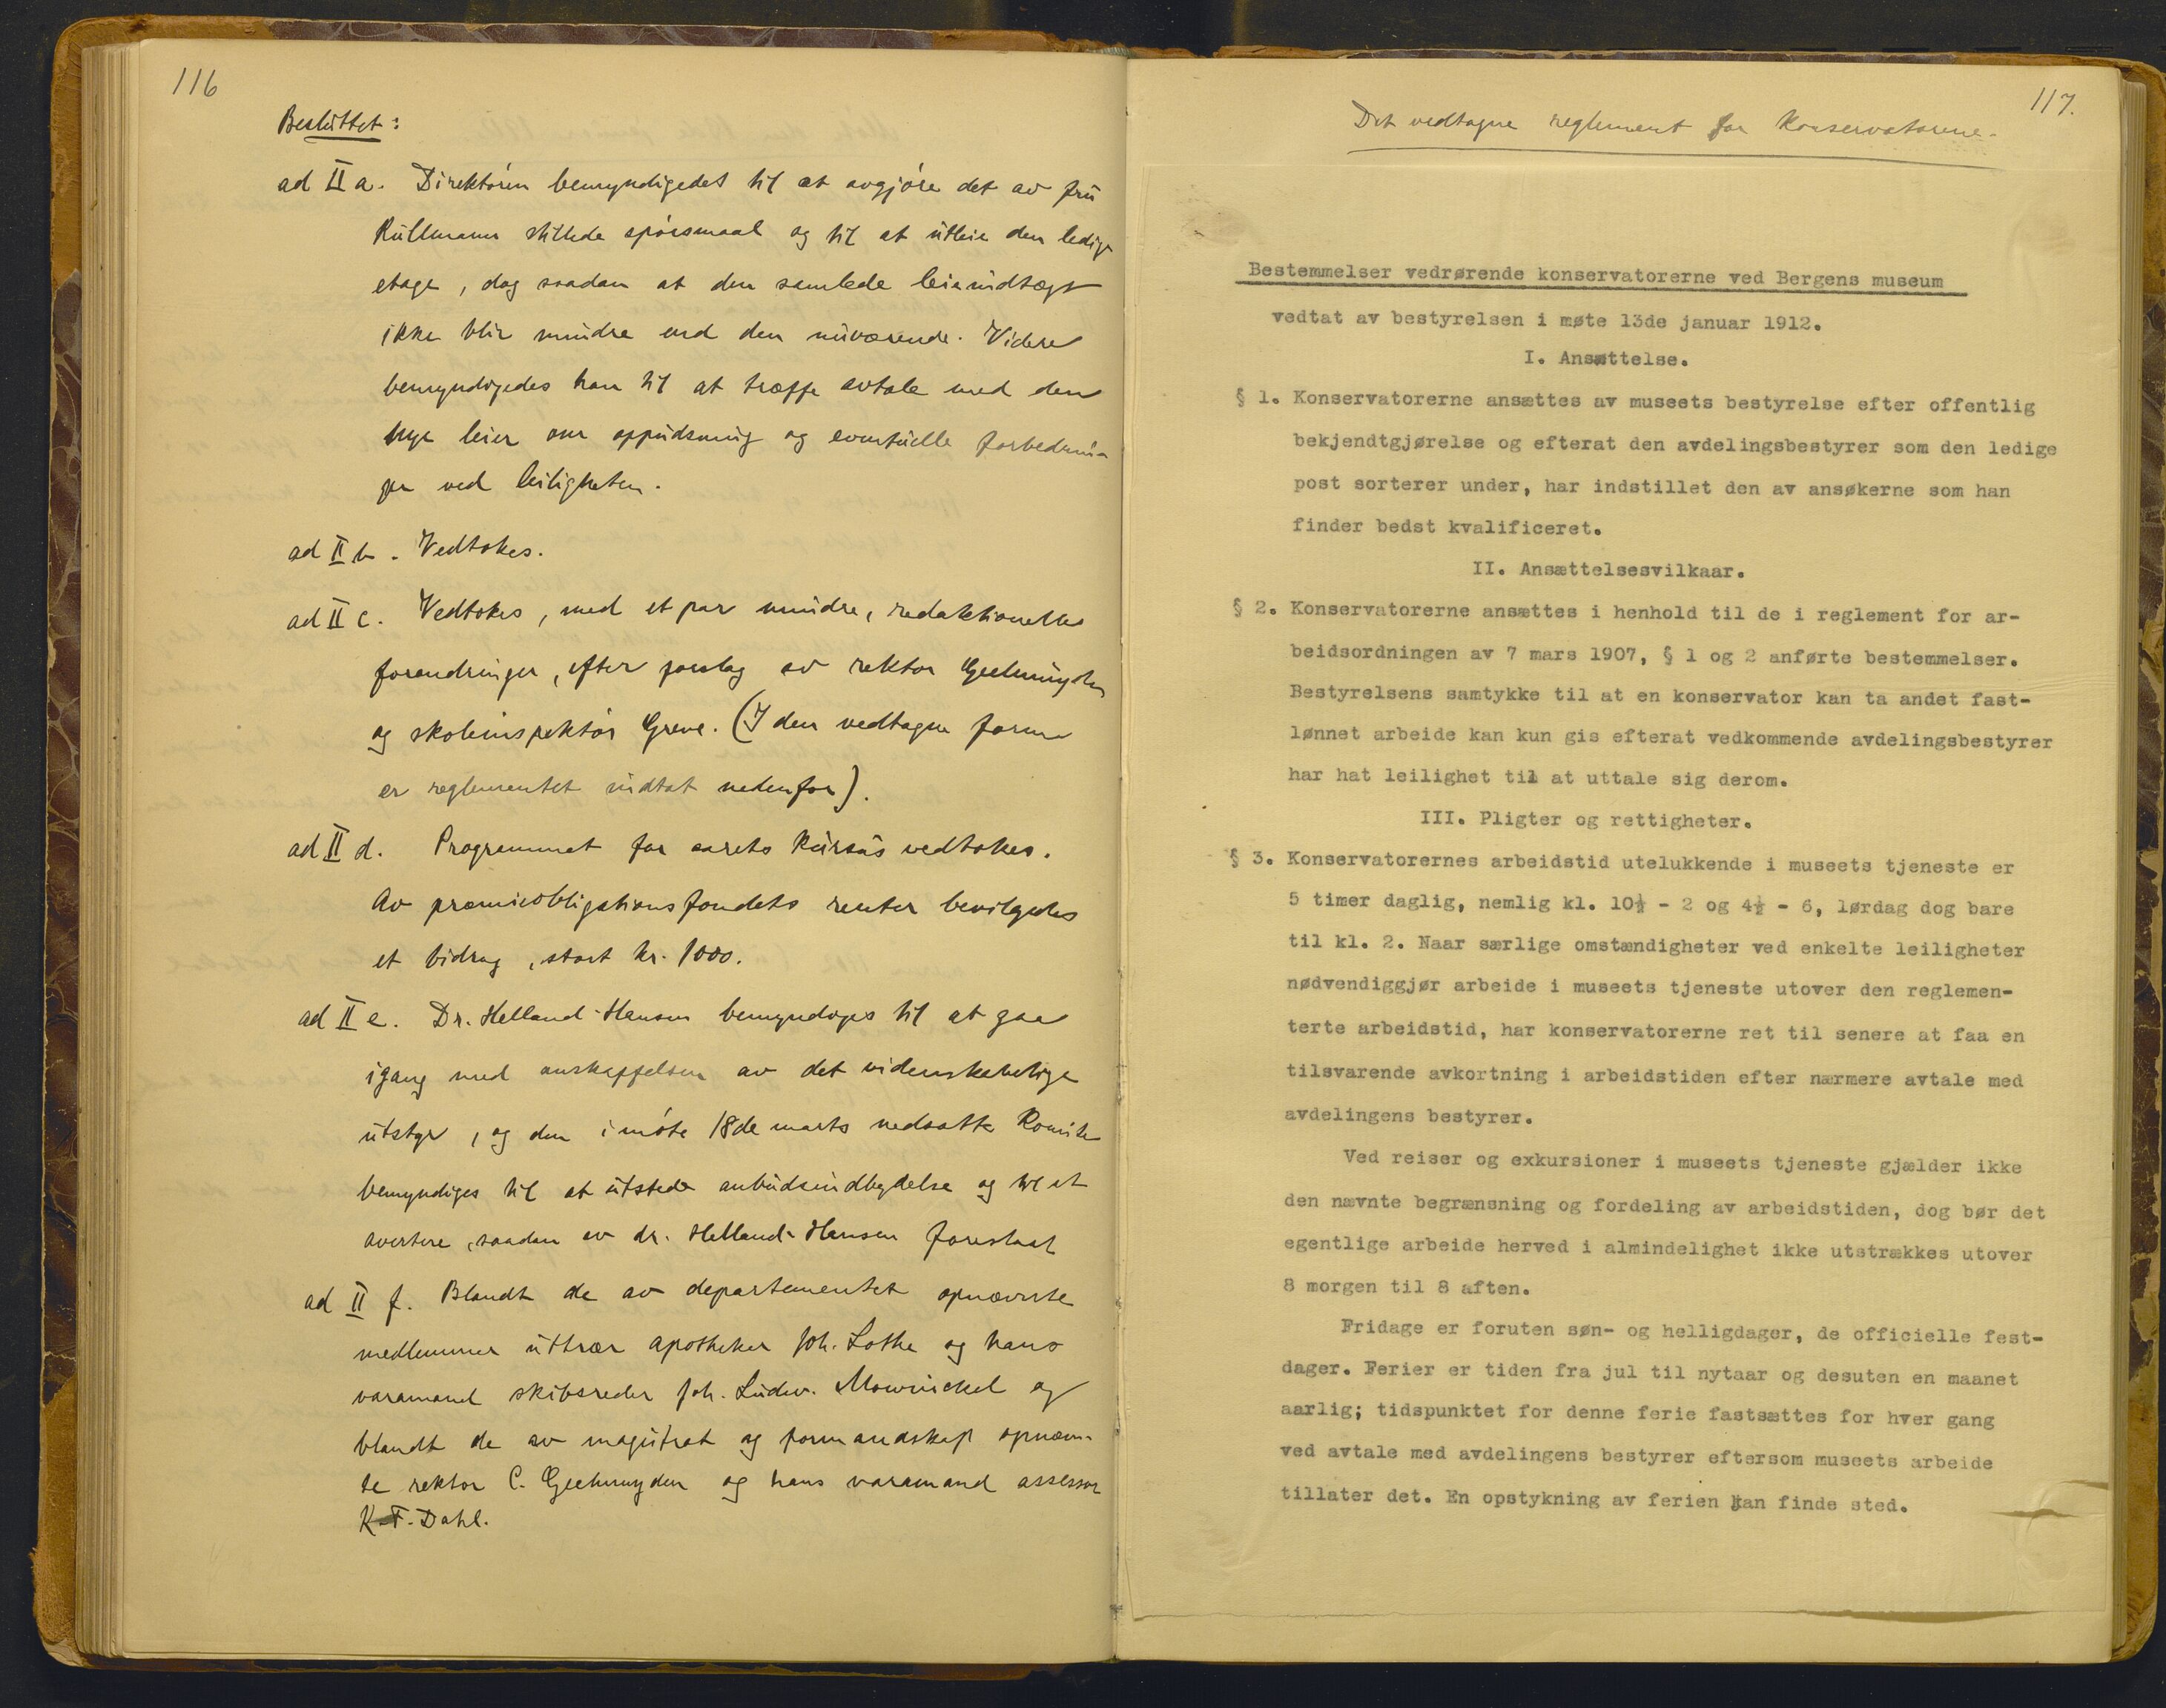 116
Besluttet:
ad II a. Direktören bemyndigedes til at avgjöre det av fru
Kullmann stillede spörsmaal og til at utleie den ledige
etage, dog saadan at den samlede leieindtægt
ikke blir mindre end den nuværende. Videre
bemyndigedes han til at træffe avtale med den
nye leier om oppudsning og eventuelle forbedrin-
ger ved leiligheten.
ad II b. Vedtokes.
ad II c. Vedtokes, med et par mindre, redaktionelle
forandringer, efter forslag av rektor Geelmuyden
og skoleinspektör Greve. (I den vedtagne form
er reglementet indtat nedenfor).
ad II d. Programmet for aarets kursus vedtokes.
Av præmieobligationsfondets renter bevilgedes
et bidrag, stort kr. 1000.
ad II e. Dr. Helland-Hansen bemyndiges til at gaa
igang med anskaffelsen av det videnskabelige
utstyr, og den i möte 18de marts nedsatte komite
bemyndiges til at utstede anbudsindbydelse og til at
avertere, saadan av dr. Helland-Hansen foreslaat
ad II f. Blandt de av departementet opnævnte
medlemmer uttrær apotheker Joh. Lothe og hans
varamand skibsreder Joh. Ludw. Mowinckel og
blandt de av magistrat og formandskap opnævn-
te rektor C. Geelmuyden og hans varamand assessor
K. F. Dahl.
117.
Det vedtagne reglement for konservatorene.
Bestemmelser vedrørende konservatorerne ved Bergens museum
vedtat av bestyrelsen i møte 13de januar 1912.
I. Ansættelse.
§ 1. Konservatorerne ansættes av museets bestyrelse efter offentlig
bekjendtgjørelse og efterat den avdelingsbestyrer som den ledige
post sorterer under, har indstillet den av ansøkerne som han
finder bedst kvalificeret.
II. Ansættelsesvilkaar.
§ 2. Konservatorerne ansættes i henhold til de i reglement for ar-
beidsordningen av 7 mars 1907, § 1 og 2 anførte bestemmelser.
Bestyrelsens samtykke til at en konservator kan ta andet fast-
lønnet arbeide kan kun gis efterat vedkommende avdelingsbestyrer
har hat leilighet til at uttale sig derom.
III. Pligter og rettigheter.
§ 3. Konservatorernes arbeidstid utelukkende i museets tjeneste er
5 timer daglig, nemlig kl. 10½ - 2 og 4½ - 6, lørdag dog bare
til kl. 2. Naar særlige omstændigheter ved enkelte leiligheter
nødvendiggjør arbeide i museets tjeneste utover den reglemen-
terte arbeidstid, har konservatorerne ret til senere at faa en
tilsvarende avkortning i arbeidstiden efter nærmere avtale med
avdelingens bestyrer.
Ved reiser og exkursioner i museets tjeneste gjælder ikke
den nævnte begrænsning og fordeling av arbeidstiden, dog bør det
egentlige arbeide herved i almindelighet ikke utstrækkes utover
8 morgen til 8 aften.
Fridage er foruten søn- og helligdager, de officielle fest-
dager. Ferier er tiden fra jul til nytaar og desuten en maanet
aarlig; tidspunktet for denne ferie fastsættes for hver gang
ved avtale med avdelingens bestyrer eftersom museets arbeide
tillater det. En opstykning av ferien kan finde sted.